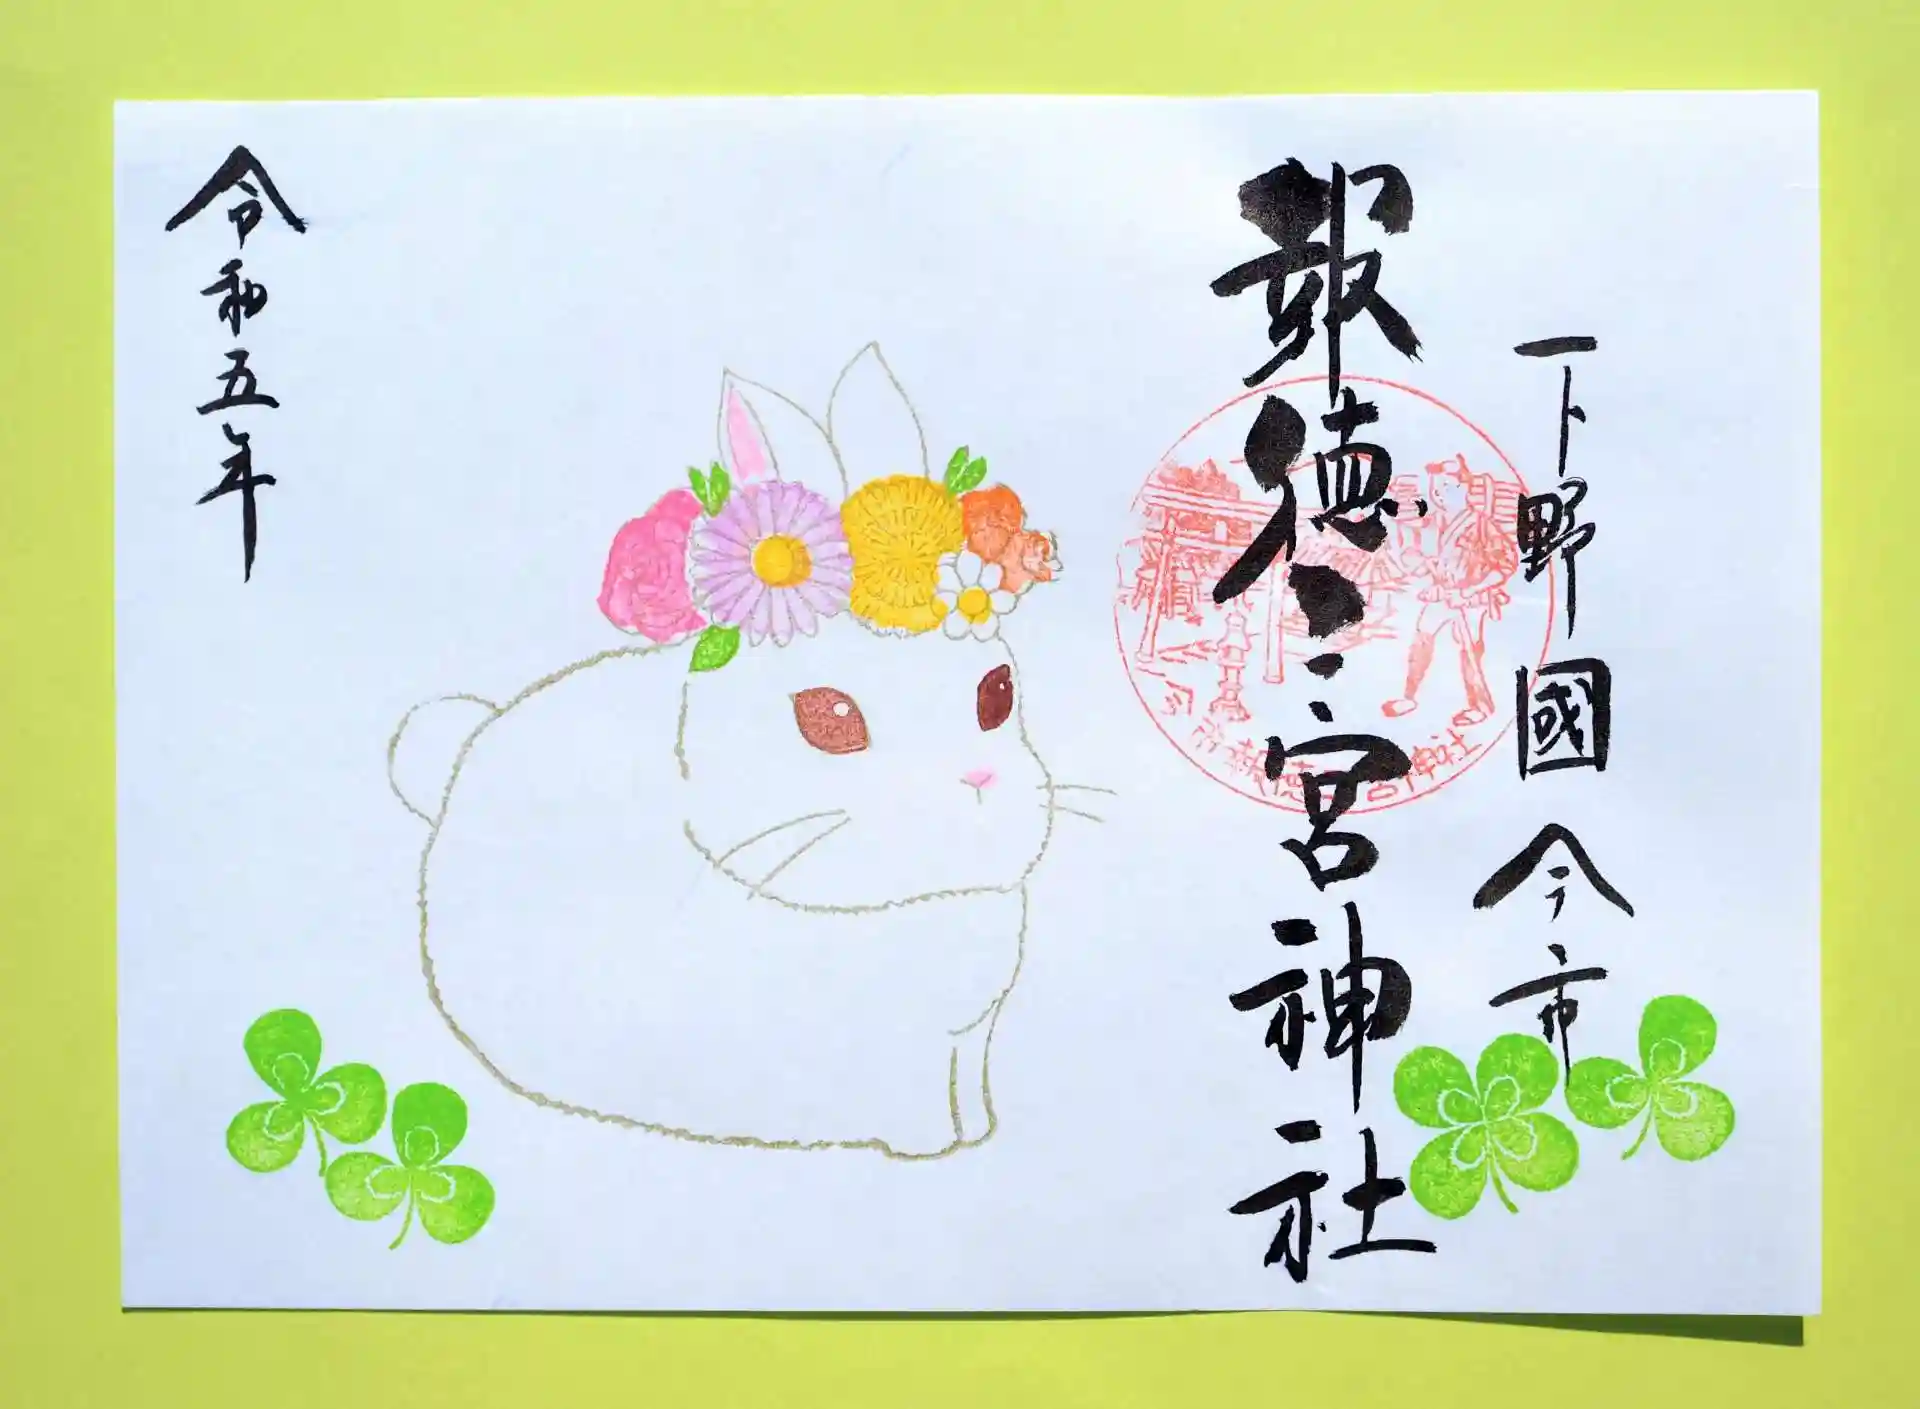 下野國今市
報徳二宮神社
今市報徳二宮神社
令和五年